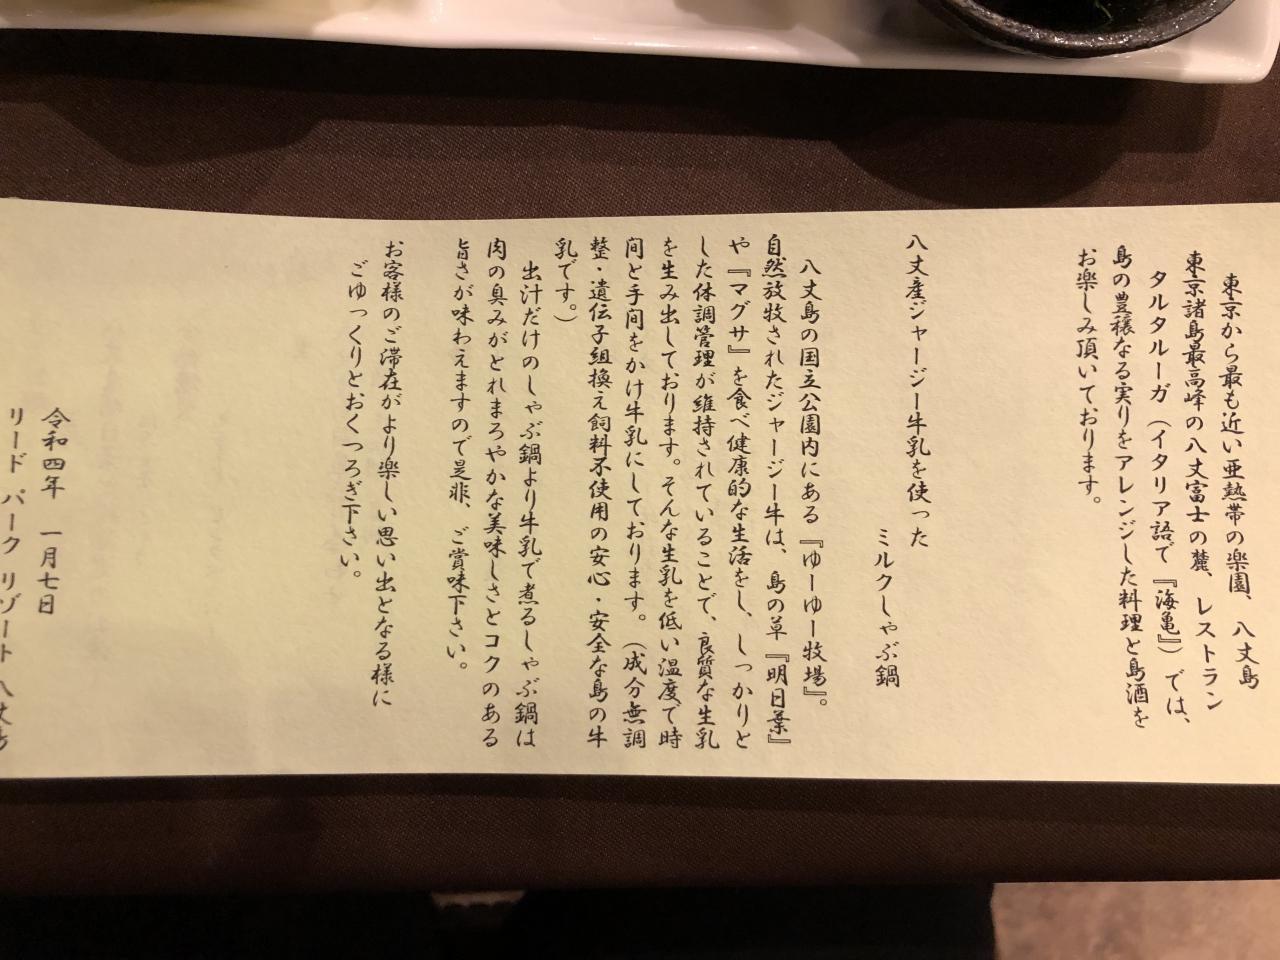 東京から最も近い亜熱帯の楽園、八丈島
東京諸島最高峰の八丈富士の麓、レストラン
タルタルーガ（イタリア語で『海亀』）では、
島の豊穣なる実りをアレンジした料理と島酒を
お楽しみ頂いております。
八丈産ジャージー牛乳を使った
ミルクしゃぶ鍋
八丈島の国立公園内にある『ゆーゆー牧場』。
自然放牧されたジャージー牛は、島の草『明日葉』
や『マグサ』を食べ健康的な生活をし、しっかりと
した体調管理が維持されていることで、良質な生乳
を生み出しております。そんな生乳を低い温度で時
間と手間をかけ牛乳にしております。（成分無調
整・遺伝子組換え飼料不使用の安心・安全な島の牛
乳です。）
出汁だけのしゃぶ鍋より牛乳で煮るしゃぶ鍋は
肉の臭みがとれまろやかな美味しさとコクのある
旨さが味わえますので是非、ご賞味下さい。
お客様のご滞在がより楽しい思い出となる様に
ごゆっくりとおくつろぎ下さい。
令和四年　一月七日
リード パーク リゾート 八丈島